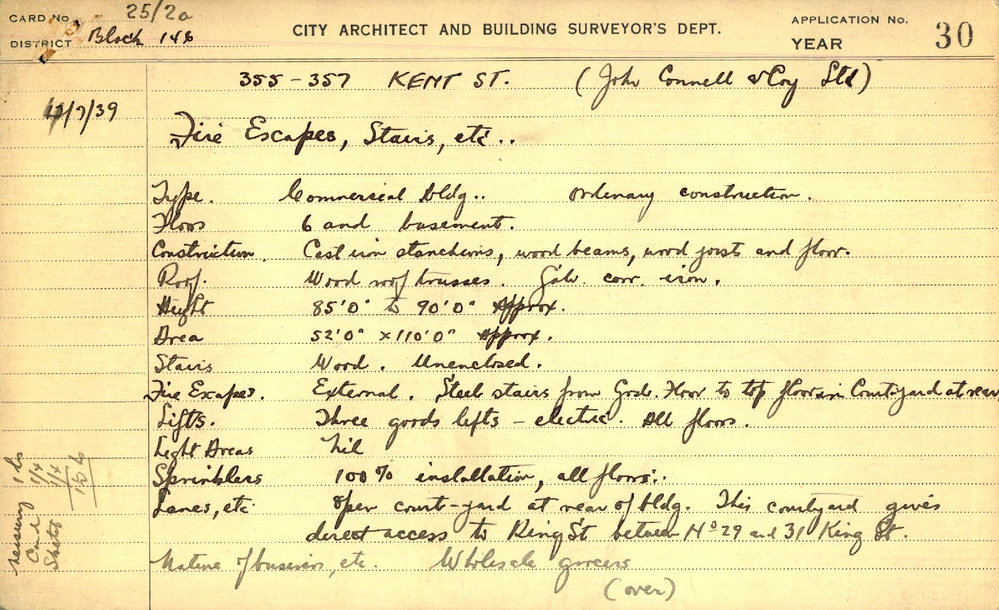 CARD No. 25/20
DISTRICT Block 146
CITY ARCHITECT AND BUILDING SURVEYOR'S DEPT.
APPLICATION No.
YEAR 30
355-357 KENT ST. (John Connell & Coy Ltd)
4/7/39
Fire Escapes, Stairs, etc..
Type. Commercial bldg.. Ordinary construction.
Floors 6 and basement.
Construction. Cast iron stancheons, wood beams, wood joist and floor.
Roof. Wood roof trusses. Galv. corr. iron.
Height 85'0" to 90'0" Approx.
Area 52'0" x 110'0" Approx.
Stairs Wood. Unenclosed.
Fire Escapes. External. Steel stairs from Grd. Floor to top floor in Court-yard at rear
Lifts. Three goods lifts - electric. All floors.
Light Areas Nil
Sprinklers 100% installation, all floors.
Lanes, etc. Open court-yard at rear of bldg. This courtyard gives
direct access to King St between No 29 and 31 King St.
Nature of business, etc. Wholesale grocers
(over)
Measuring 1 hr
Card 1/4
Shets 1/4
1 1/2 h